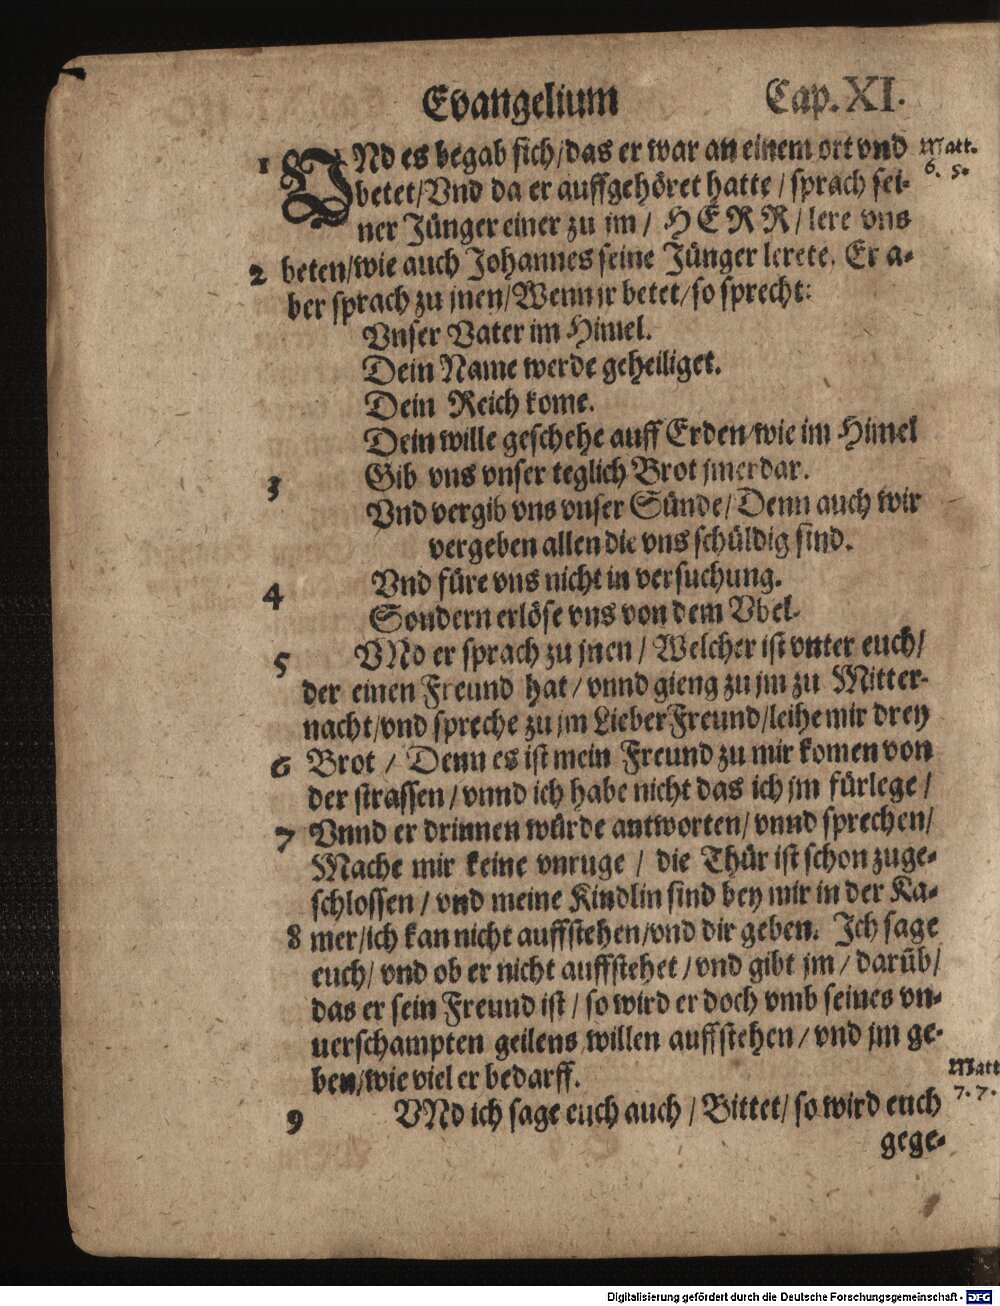 Evangelium Cap. XI.
1 VNd es begab sich/das er war an einem ort vnd Matt.
betet/Vnd da er auffgehöret hatte / sprach sei- 6. 5.
ner Jünger einer zu jm / HERR / lere vns
2 beten/wie auch Johannes seine Jünger lerete. Er a-
ber sprach zu jnen/Wenn jr betet/so sprecht:
Vnser Vater im Himel.
Dein Name werde geheiliget.
Dein Reich kome.
Dein wille geschehe auff Erden/wie im Himel
3 Gib vns vnser teglich Brot jmerdar.
Vnd vergib vns vnser Sünde/ Denn auch wir
vergeben allen die vns schüldig sind.
4 Vnd füre vns nicht in versuchung.
Sondern erlöse vns von dem Vbel.
5 VNd er sprach zu jnen / Welcher ist vnter euch/
der einen Freund hat / vnnd gieng zu jm zu Mitter-
nacht/vnd spreche zu jm Lieber Freund/leihe mir drey
6 Brot / Denn es ist mein Freund zu mir komen von
der strassen / vnnd ich habe nicht das ich jm fürlege /
7 Vnnd er drinnen würde antworten/ vnnd sprechen/
Mache mir keine vnruge / die Thür ist schon zuge-
schlossen / vnd meine Kindlin sind bey mir in der Ka-
8 mer/ich kan nicht auffstehen/vnd dir geben. Ich sage
euch/ vnd ob er nicht auffstehet / vnd gibt jm / darüb/
das er sein Freund ist / so wird er doch vmb seines vn-
uerschampten geilens willen auffstehen / vnd jm ge-
ben/wie viel er bedarff. Matt
9 VNd ich sage euch auch / Bittet/ so wird euch 7. 7.
gege-
Digitalisierung gefördert durch die Deutsche Forschungsgemeinschaft - DFG